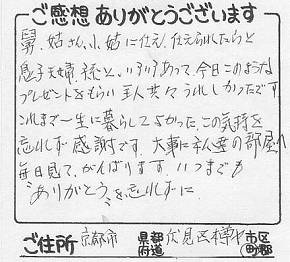 ご感想 ありがとうございます
舅、姑さん、小姑に仕え、仕えられたらと
息子夫婦、孫と、いろいろあって、今日このような
プレゼントをもらい主人共々うれしかったです。
これまで一生に暮らしてよかった。この気持を
忘れず感謝です。大事に私達の部屋へ
毎日見て、がんばります。いつまでも
"ありがとう"を忘れずに
ご住所 京都市 都道府県 伏見区 市区町郡